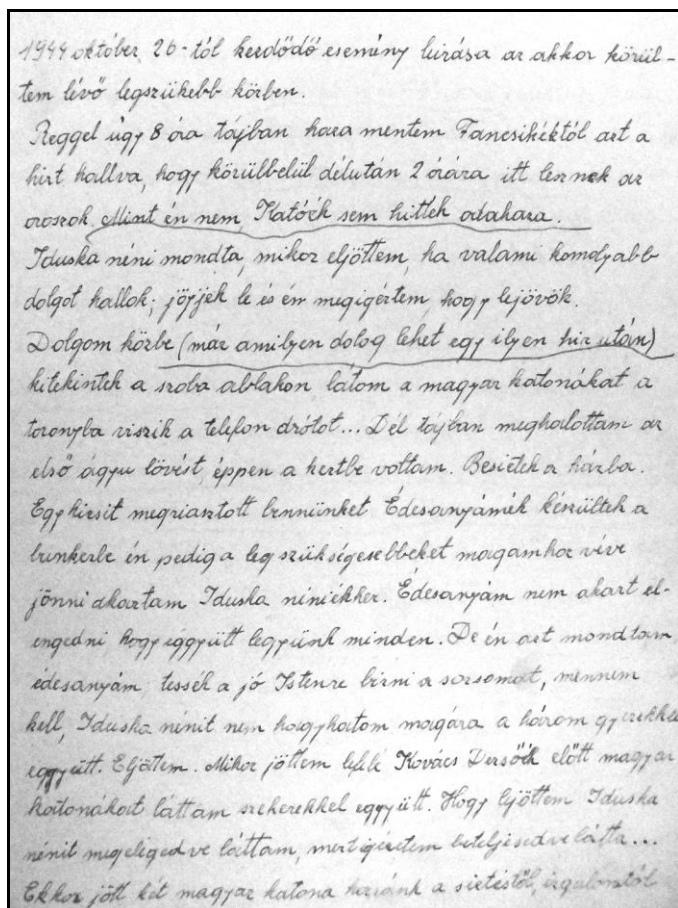 1944 október 26-tól kezdődő esemény leirása az akkor körül-
tem lévő legszükebb körben.
Reggel úgy 8 óra tájban haza mentem Fancsikéktól azt a
hirt hallva, hogy körülbelül délután 2 órára itt lesznek az
oroszok. Mint én nem, Katóék sem hitték odahaza.
Iduska néni mondta, mikor eljöttem, ha valami komolyabb
dolgot hallok, jöjjek le és én megigértem, hogy lejövök.
Dolgom közbe (már amilyen dolog lehet egy ilyen hir után)
kitekintek a szoba ablakon látom a magyar katonákat a
toronyba viszik a telefon drótot... Dél tájban meghalottam az
első ágyu lövést, éppen a kertbe voltam. Besietek a házba.
Egy kicsit megriasztott bennünket. Édesanyámék készültek a
bunkerbe én pedig a legszükségesebbeket magamhoz véve
jönni akartam Iduska néniékhez. Édesanyám nem akart el-
engedni hogy eggyütt legyünk minden. De én azt mondtam
édesanyám tessék a jó Istenre bizni a sorsomat, mennem
kell, Iduska nénit nem hagyhatom magára a három gyerekkel
eggyütt. Eljöttem. Mikor jöttem lefelé Kovács Dersőék előtt magyar
katonákat láttam szekerekkel együtt. Hogy lejöttem Iduska
nénit megelégedve láttam, mert igéretem beteljesedve látta...
Ekkor jött két magyar katona hozzánk a sietéstől, izgalomtól